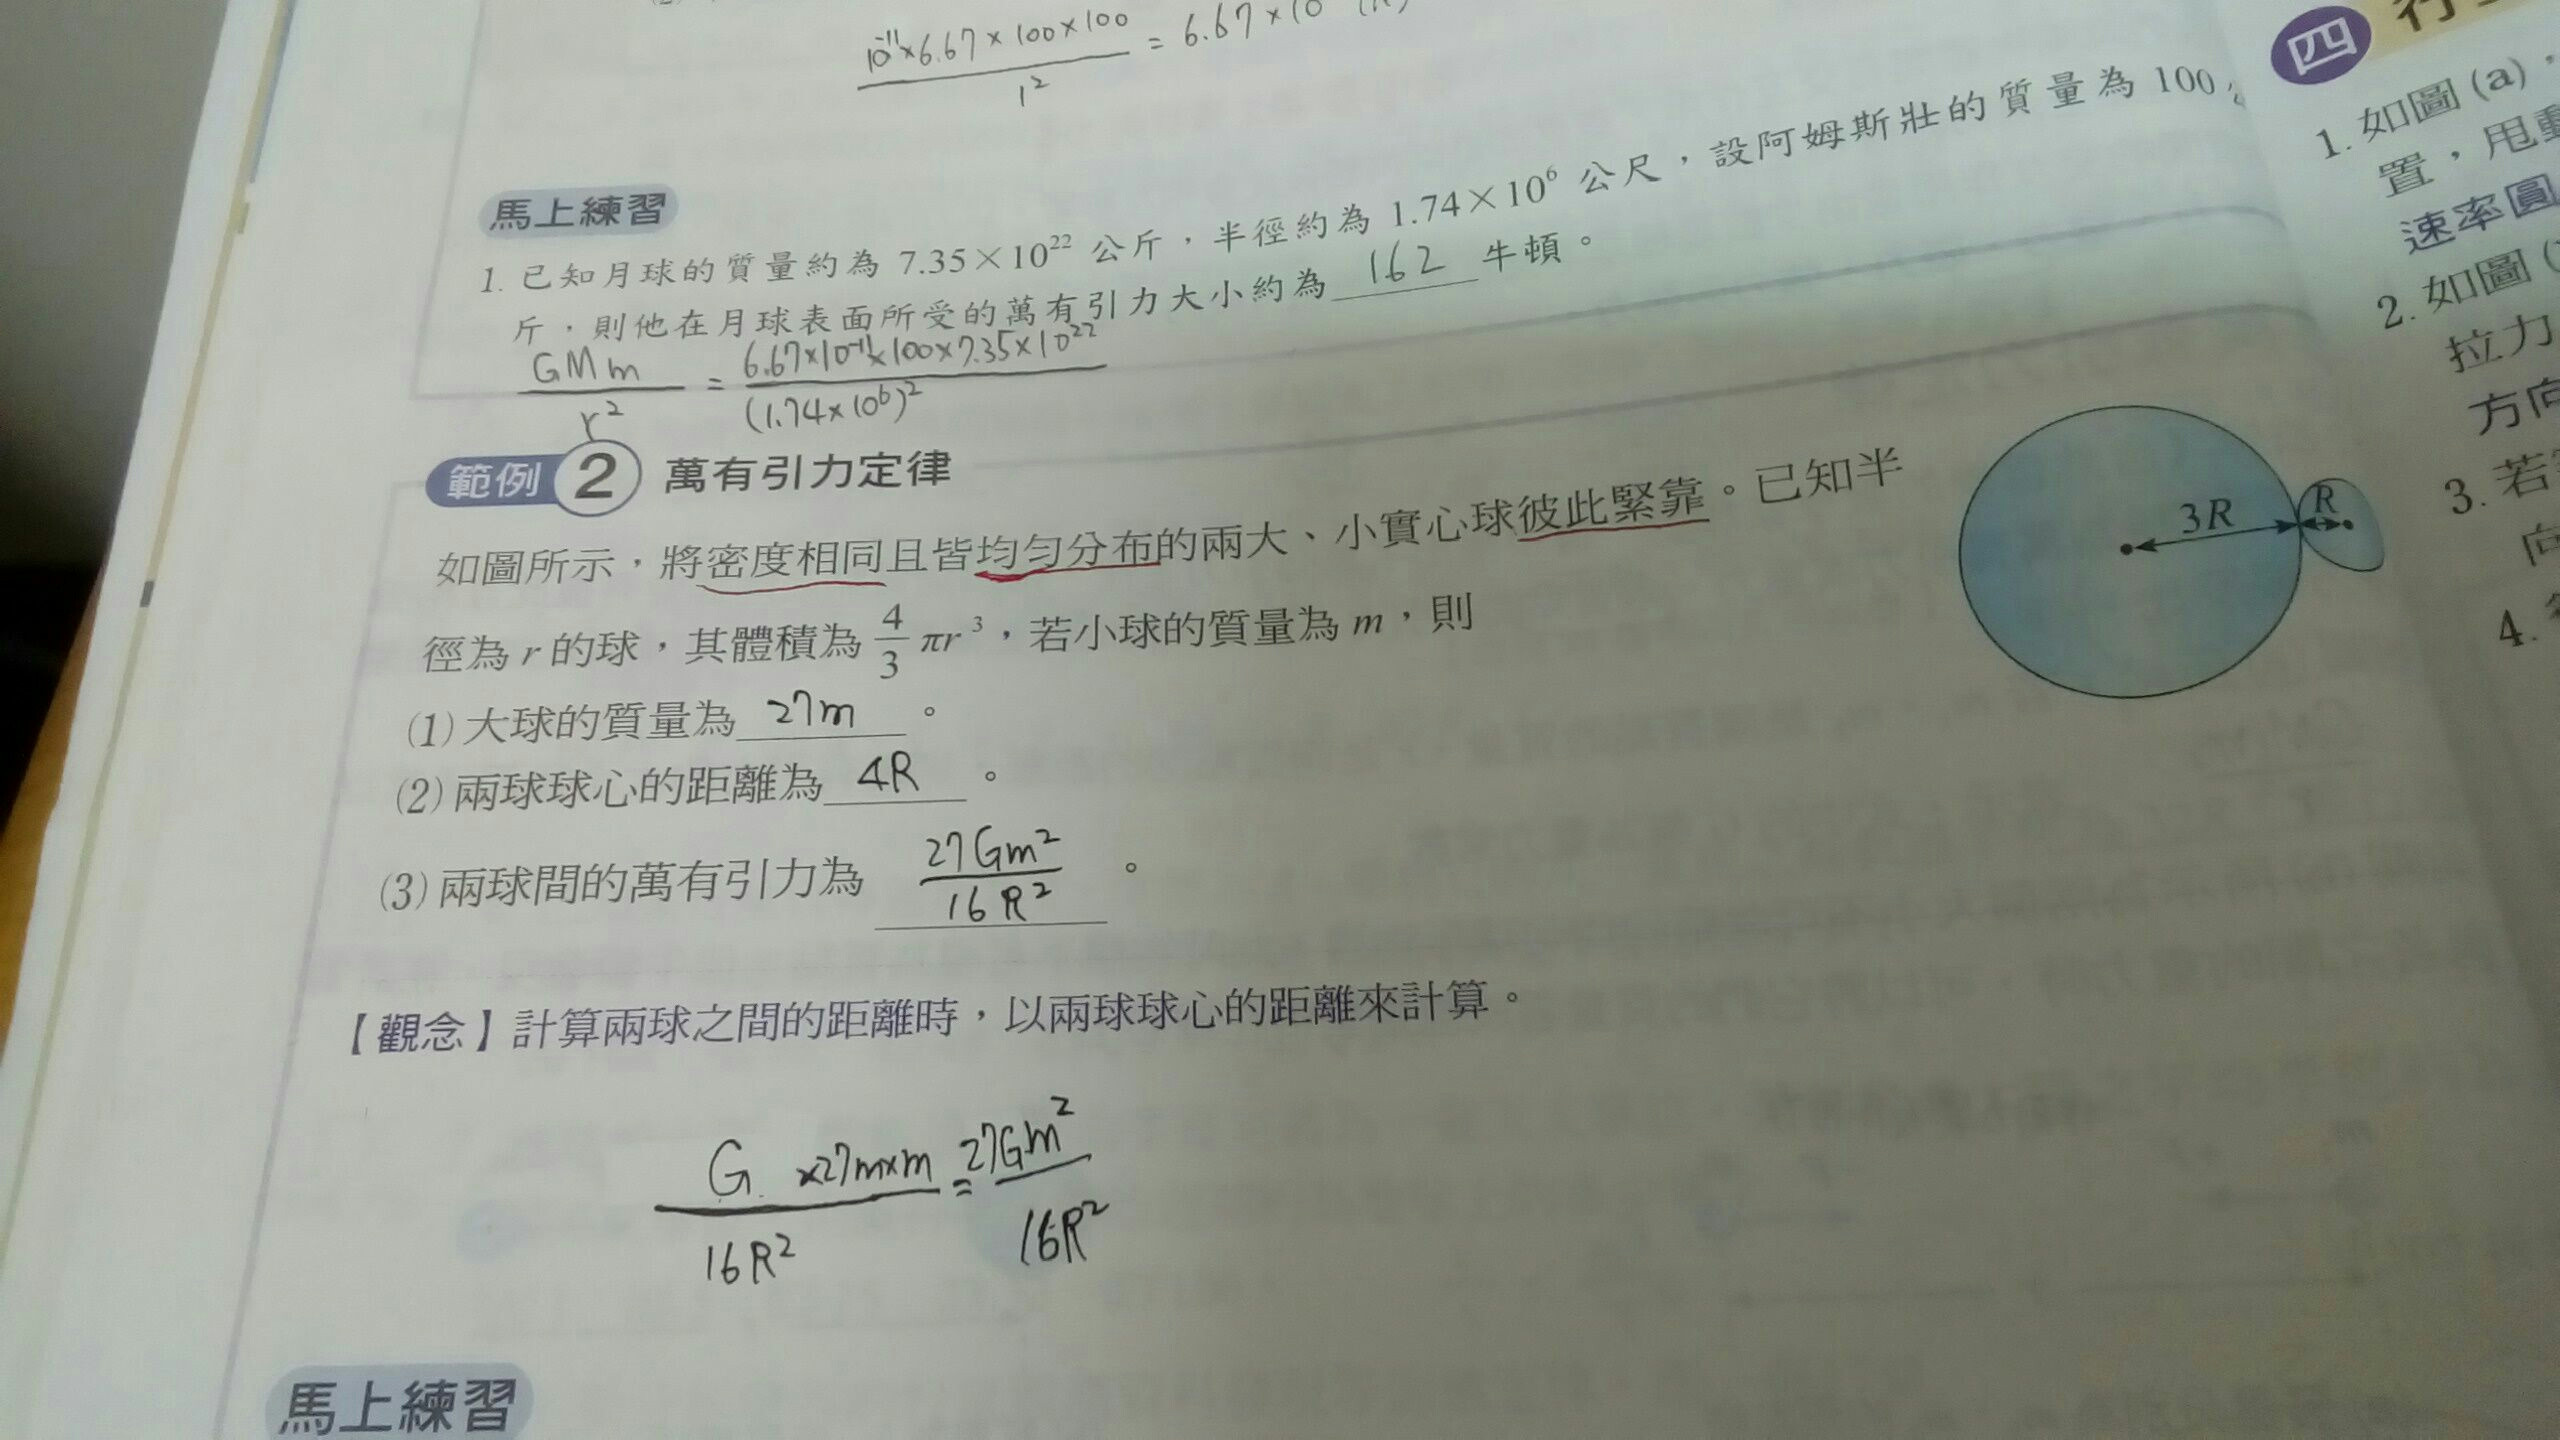 10⁻¹¹×6.67×100×100 / 1² = 6.67×10
馬上練習
1. 已知月球的質量約為 7.35×10²² 公斤，半徑約為 1.74×10⁶ 公尺，設阿姆斯壯的質量為 100
斤，則他在月球表面所受的萬有引力大小約為 162 牛頓。
GMm / r² = 6.67×10⁻¹¹×100×7.35×10²² / (1.74×10⁶)²
範例 2 萬有引力定律
如圖所示，將密度相同且皆均勻分布的兩大、小實心球彼此緊靠。已知半
徑為 r 的球，其體積為 4/3 πr³，若小球的質量為 m，則
3R R
(1) 大球的質量為 27m 。
(2) 兩球球心的距離為 4R 。
(3) 兩球間的萬有引力為 27Gm² / 16R² 。
【觀念】計算兩球之間的距離時，以兩球球心的距離來計算。
G ×27m×m / 16R² = 27Gm² / 16R²
馬上練習
四
1. 如圖 (a)，
置，甩動
速率圓
2. 如圖 (
拉力
方向
3. 若
向
4.